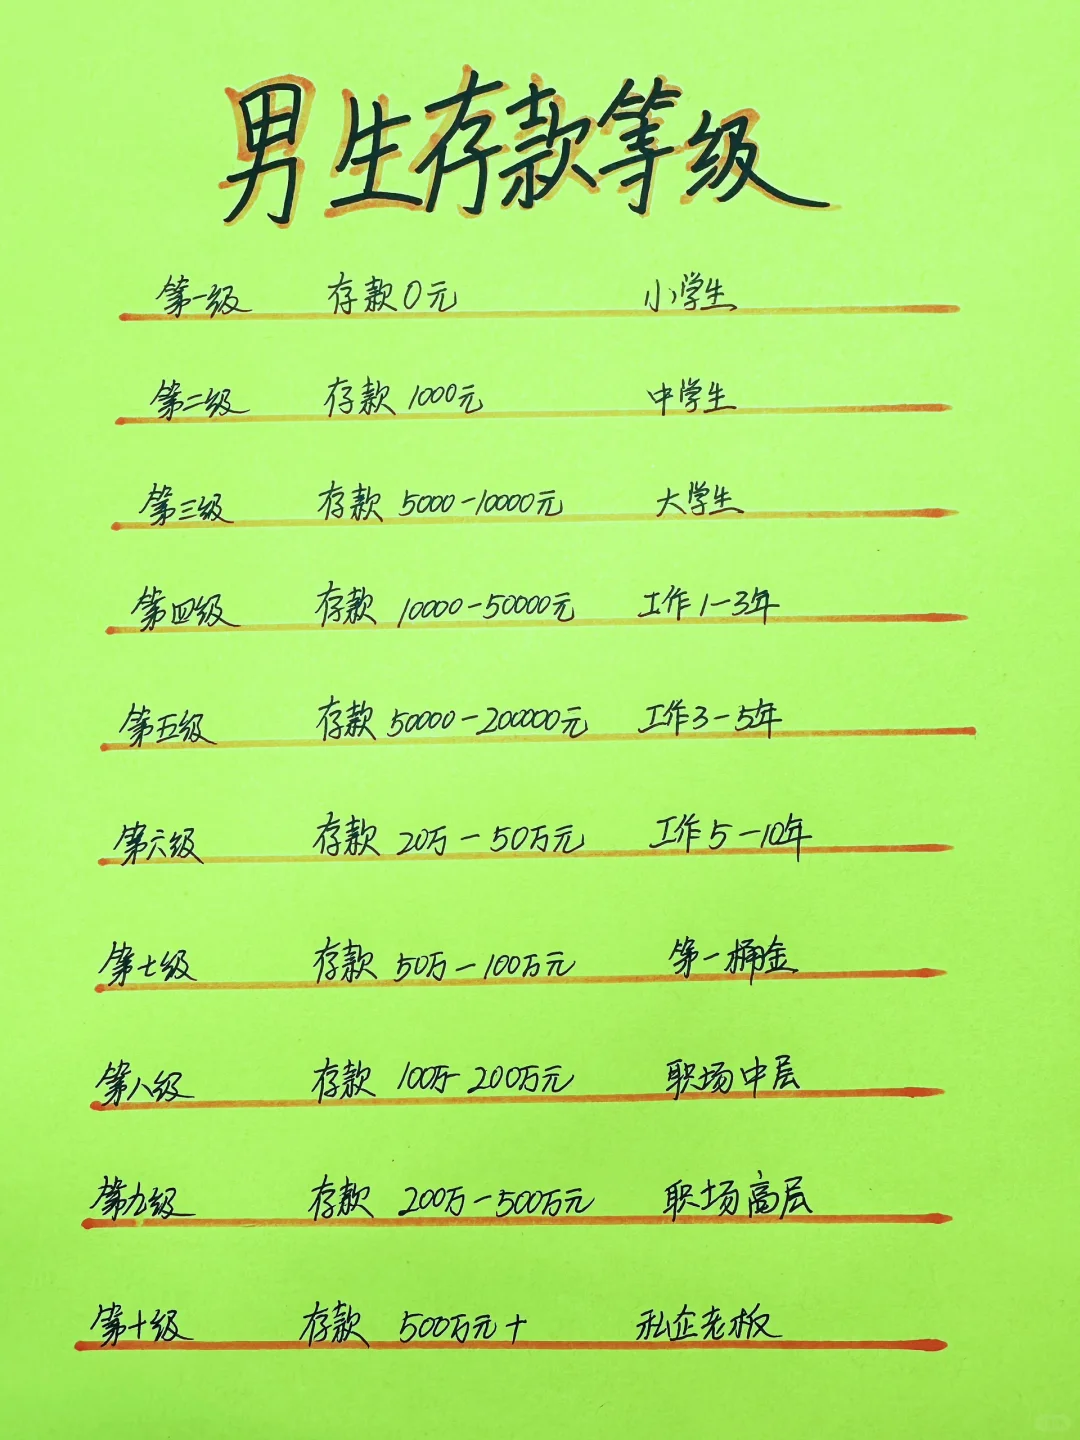 男生存款等级
第一级 存款0元 小学生
第二级 存款1000元 中学生
第三级 存款 5000-10000元 大学生
第四级 存款 10000-50000元 工作1-3年
第五级 存款50000-200000元 工作3-5年
第六级 存款 20万-50万元 工作5-10年
第七级 存款 50万-100万元 第一桶金
第八级 存款 100万-200万元 职场中层
第九级 存款 200万-500万元 职场高层
第十级 存款 500万元+ 私企老板